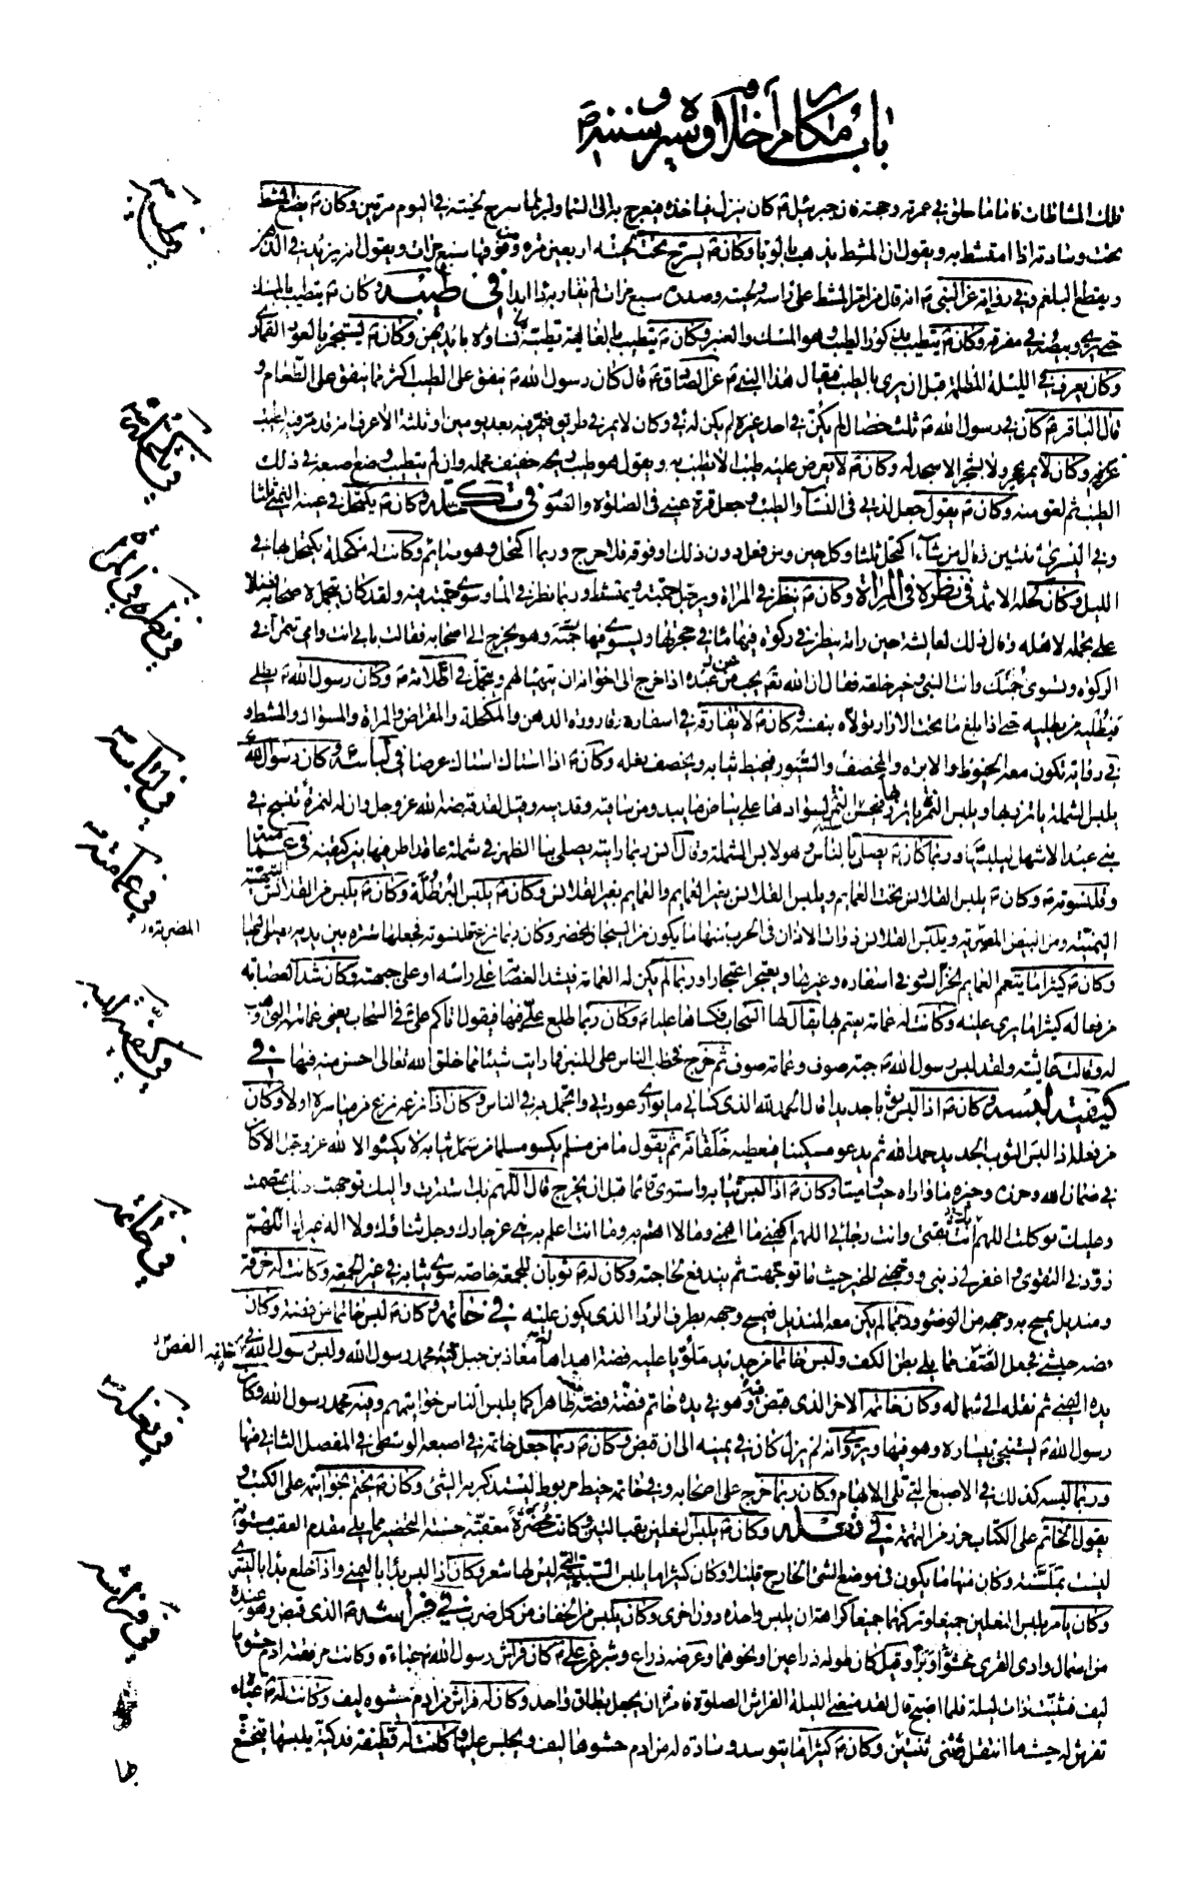 باب مكارم أخلاقه وسيره وسننه ص
تلك المشاطات فاما ما حلق في عمرته وحجته فان جبرئيل ع كان ينزل فياخذه فيعرج به الى السماء ولربما سرح لحيته في اليوم مرتين وكان ص يضع المشط
في طيبه ص
تحت وسادته اذا امتشط به ويقول ان المشط يذهب بالوباء وكان ص يسرح تحت لحيته اربعين مرة ومن فوقها سبع مرات ويقول انه يزيد في الذهن
ويقطع البلغم وفي رواية عن النبي ص انه قال من امر المشط على راسه ولحيته وصدره سبع مرات لم يقاربه داء ابدا في طيبه وكان ص يتطيب بالمسك
حتى يرى وبيصه في مفرقه وكان ص يتطيب بذكور الطيب وهو المسك والعنبر وكان ص يتطيب بالغالية تطيبه بها نساؤه بايديهن وكان ص يستجمر بالعود القماري
وكان يعرف في الليلة المظلمة قبل ان يرى بالطيب فيقال هذا النبي ص عن الصادق ع قال كان رسول الله ص ينفق على الطيب اكثر مما ينفق على الطعام و
قال الباقر ع كان في رسول الله ص ثلث خصال لم يكن في احد غيره لم يكن له فيء وكان لا يمر في طريق فيمر فيه بعد يومين او ثلثة الا عرف انه قد مر فيه لطيب
في تكحله ص
عرفه وكان لا يمر بحجر ولا بشجر الا سجد له وكان ص لا يعرض عليه طيب الا تطيب به ويقول هو طيب ريحه خفيف محمله وان لم يتطيب وضع اصبعه في ذلك
الطيب ثم لعق منه وكان ص يقول جعل لذتي في النساء والطيب وجعل قرة عيني في الصلوة والصوم في تكحله وكان ص يكتحل في عينه اليمنى ثلثا
وفي اليسرى ثنتين وقال من شاء اكتحل ثلثا وكل حين ومن فعل دون ذلك او فوقه فلا حرج وربما اكتحل وهو صائم وكانت له مكحلة يكتحل بها في
في نظره في المرآة
الليل وكان كحله الاثمد في نظره في المرآة وكان ص ينظر في المرآة ويرجل جمته ويتمشط وربما نظر في الماء وسوى جمته فيه ولقد كان يتجمل لاصحابه فضلا
على تجمله لاهله وقال ذلك لعائشة حين راته ينظر في ركوة فيها ماء في حجرتها ويسوي فيها جمته وهو يخرج الى اصحابه فقالت بابي انت وامي تتمرا في
الركوة وتسوي جمتك وانت النبي وخير خلقه فقال ان الله تعالى يحب من عبده اذا خرج الى اخوانه ان يتهيا لهم ويتجمل في اطلائه ص وكان رسول الله ص يطلي
فيطليه من يطليه حتى اذا بلغ ما تحت الازار تولاه بنفسه وكان ص لا يفارقه في اسفاره قارورة الدهن والمكحلة والمقراض والمرآة والمسواك والمشط و
في لباسه ص
في رواية تكون معه الخيوط والابرة والمخصف والسيور فيخيط ثيابه ويخصف نعله وكان ص اذا استاك استاك عرضا في لباسه وكان رسول الله ص
يلبس الشملة ياتزر بها ويلبس النمرة ياتزر بها فيحسن عليه النمرة لسوادها على بياض ما يبدو من ساقيه وقدميه وقيل لقد قبضه الله عز وجل وان له لنمرة تنسج في
في عمامته ص
بني عبد الاشهل ليلبسها وربما كان ص يصلي بالناس وهو لابس الشملة وقال انس ربما رايته يصلي بنا الظهر في شملة عاقدا طرفيها بين كتفيه في عمامته
وقلنسوته ص وكان ص يلبس القلانس تحت العمايم ويلبس القلانس بغير العمايم والعمايم بغير القلانس وكان ص يلبس البرطلة وكان ص يلبس من القلانس
المضربة
اليمنية ومن البيض المضربة ويلبس القلانس ذوات الاذان في الحرب ومنها ما يكون من السيجان الخضر وكان ربما نزع قلنسوته فجعلها سترة بين يديه يصلي اليها
وكان ص كثيرا ما يتعمم العمايم الخز السود في اسفاره وغيرها ويعتجر اعتجارا وربما لم يكن له العمامة فيشد العصابة على راسه او على جبهته وكان شد العصابة
في كيفية لبسه
من فعاله كثيرا ما يرى عليه وكانت له عمامة يعتم بها يقال لها السحاب فكساها عليا ع وكان ربما طلع علي فيها فيقول اتاكم علي في السحاب يعني عمامته التي وهب
له وقالت عائشة ولقد لبس رسول الله ص جبة صوف وعمامة صوف ثم خرج فخطب الناس على المنبر فما رايت شيئا مما خلق الله تعالى احسن منه فيها في
كيفية لبسه وكان ص اذا لبس ثوبا جديدا قال الحمد لله الذي كساني ما يواري عورتي واتجمل به في الناس وكان اذا نزعه نزع من مياسره اولا وكان
من فعله اذا لبس الثوب الجديد حمد الله ثم يدعو مسكينا فيعطيه خلقانه ثم يقول ما من مسلم يكسو مسلما من سمل ثيابه لا يكسوه الا لله عز وجل الا كان
في ضمان الله وحرزه وخيره ما واراه حيا وميتا وكان ص اذا لبس ثيابه واستوى قائما قبل ان يخرج قال اللهم بك استترت واليك توجهت وبك اعتصمت
في خاتمه
وعليك توكلت اللهم انت ثقتي وانت رجائي اللهم اكفني ما اهمني وما لا اهتم به وما انت اعلم به مني عز جارك وجل ثناؤك ولا اله غيرك اللهم
زودني التقوى واغفر لي ذنبي ووجهني للخير حيث ما توجهت ثم يندفع لحاجته وكان له ص ثوبان للجمعة خاصة سوى ثيابه في غير الجمعة وكانت له خرقة
ومنديل يمسح به وجهه من الوضوء وربما لم يكن معه المنديل فيمسح وجهه بطرف الرداء الذي يكون عليه في خاتمه وكان ص لبس خاتما من فضة وكان
فصه حبشي فجعل الفص مما يلي بطن الكف ولبس خاتما من حديد ملوي عليه فضة اهداها له معاذ بن جبل فيه محمد رسول الله ولبس رسول الله خاتمه في
يده اليمنى ثم نقله الى شماله وكان خاتمه الاخر الذي قبض وهو في يده خاتم فضة فصه ظاهرا كما يلبس الناس خواتيمهم وفيه محمد رسول الله وكان
في نعله ص
رسول الله ص يستنجي بيساره وهو فيها ويروى انه لم يزل كان في يمينه الى ان قبض وكان ص ربما جعل خاتمه في اصبعه الوسطى في المفصل الثاني منها
وربما لبسه كذلك في الاصبع التي تلي الابهام وكان ربما خرج على اصحابه وفي خاتمه خيط مربوط ليستذكر به الشيء وكان ص يختم بخواتيمه على الكتب و
يقول الخاتم على الكتاب حرز من التهمة في نعله وكان ص يلبس النعلين بقبالين وكانت مخصرة معقبة حسنة التخصير مما يلي مقدم العقب مستوية
ليست بملسنة وكان منها ما يكون في موضع الشيء الخارج قليلا وكان كثيرا ما يلبس السبتية التي ليس لها شعر وكان اذا لبس بدا باليمنى واذا خلع بدا باليسرى
في فراشه
وكان يامر بلبس النعلين جميعا وتركهما جميعا كراهة ان يلبس واحدة دون اخرى وكان يلبس من الخفاف من كل ضرب في فراشه ص الذي قبض وهو عنده
من اسمال وادي القرى محشوا وبرا وقيل كان طوله ذراعين او نحوهما وعرضه ذراع وشبر عن علي ع كان فراش رسول الله ص عباءة وكانت مرفقته ادم حشوها
ليف فثنيت ذات ليلة فلما اصبح قال لقد منعني الليلة الفراش الصلوة فامر ص ان يجعل بطاق واحد وكان له فراش من ادم حشوه ليف وكانت له ص عباءة
تفرش له حيثما انتقل وتثنى ثنتين وكان ص كثيرا ما يتوسد وسادة له من ادم حشوها ليف ويجلس عليها وكانت له قطيفة فدكية يلبسها يتخشع
بها